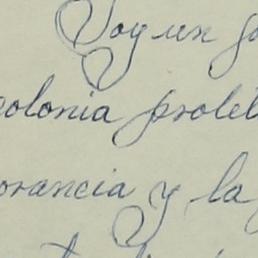 Soy un jo
colonia prolet
orancia y la